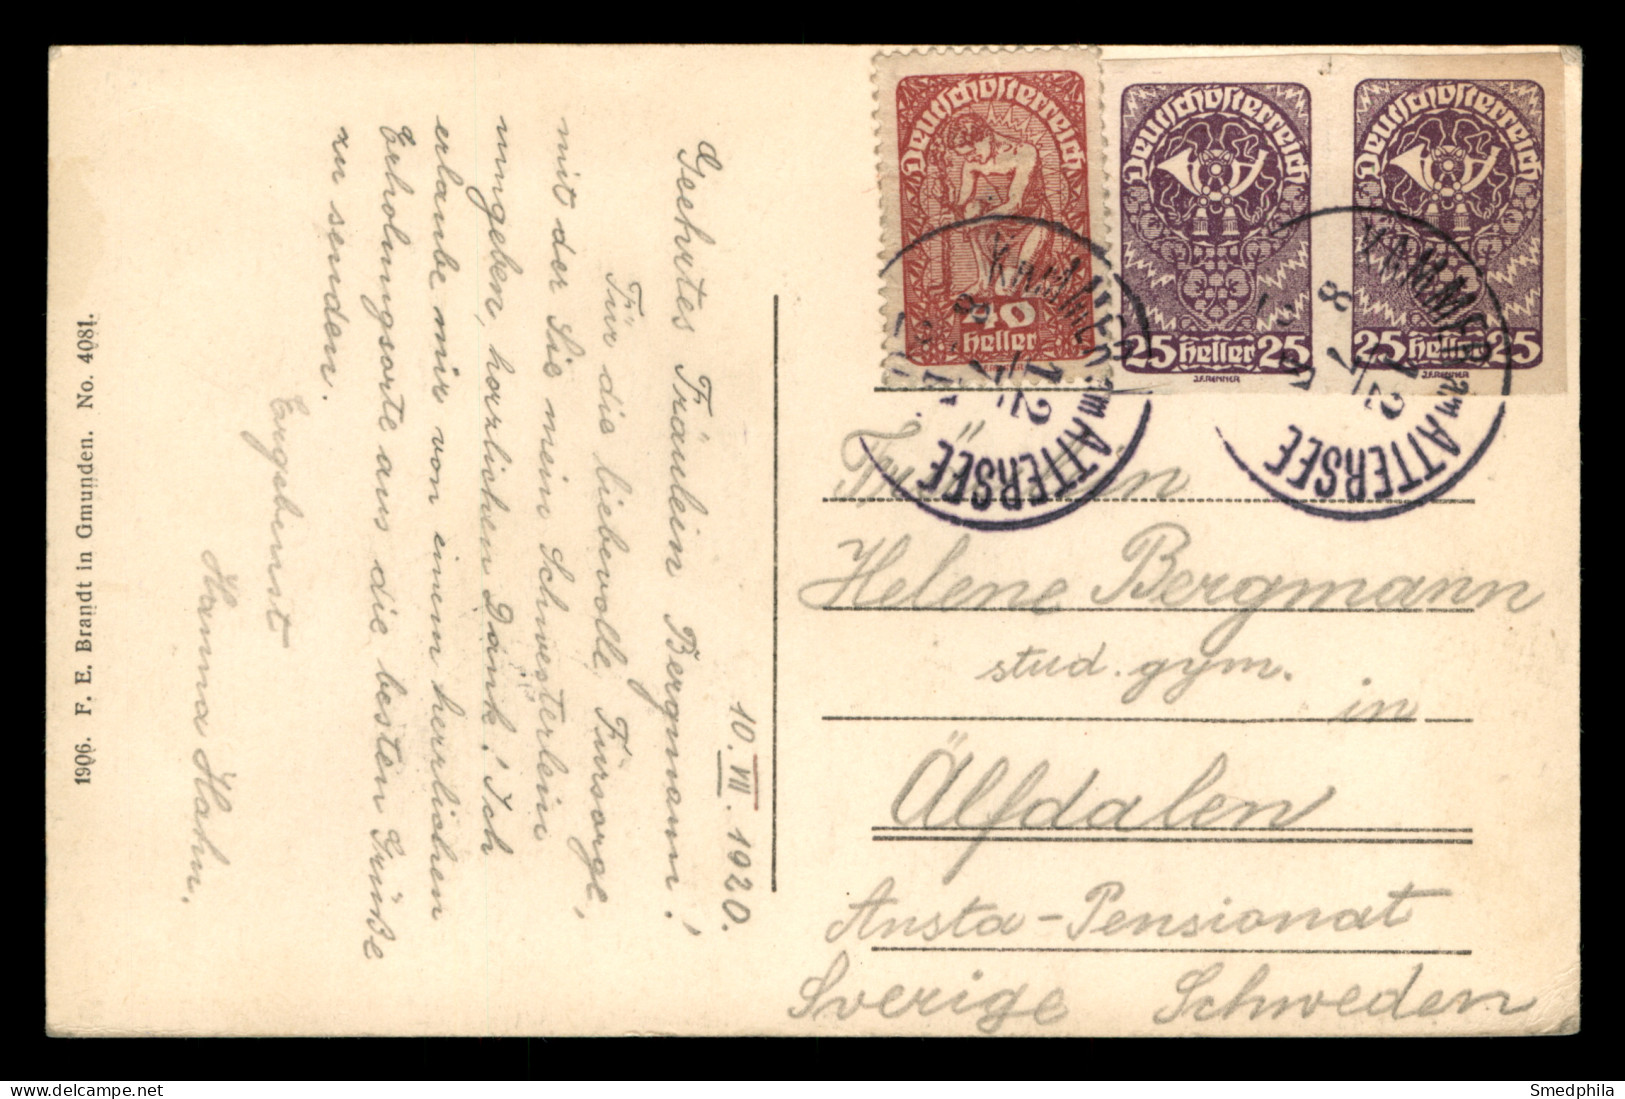 10.VII.1920.
Geehrtes Fräulein Bergmann!
Für die liebevolle Fürsorge,
mit der Sie mein Schwesterlein
umgeben, herzlichen Dank! Ich
erlaube mir von einem herrlichen
Erholungsorte aus die besten Grüße
zu senden.
Ergebenst
Hanna Hahn.
1906. F. E. Brandt in Gmunden. No. 4081.
Deutschösterreich
40
Heller
Deutschösterreich
25 Heller 25
J.F.RENNER
Deutschösterreich
25 Heller 25
J.F.RENNER
KAMMER am ATTERSEE
KAMMER am ATTERSEE
Fräulein
Helene Bergmann
stud. gym.
in
Älfdalen
Ansta-Pensionat
Sverige Schweden
Smedphila